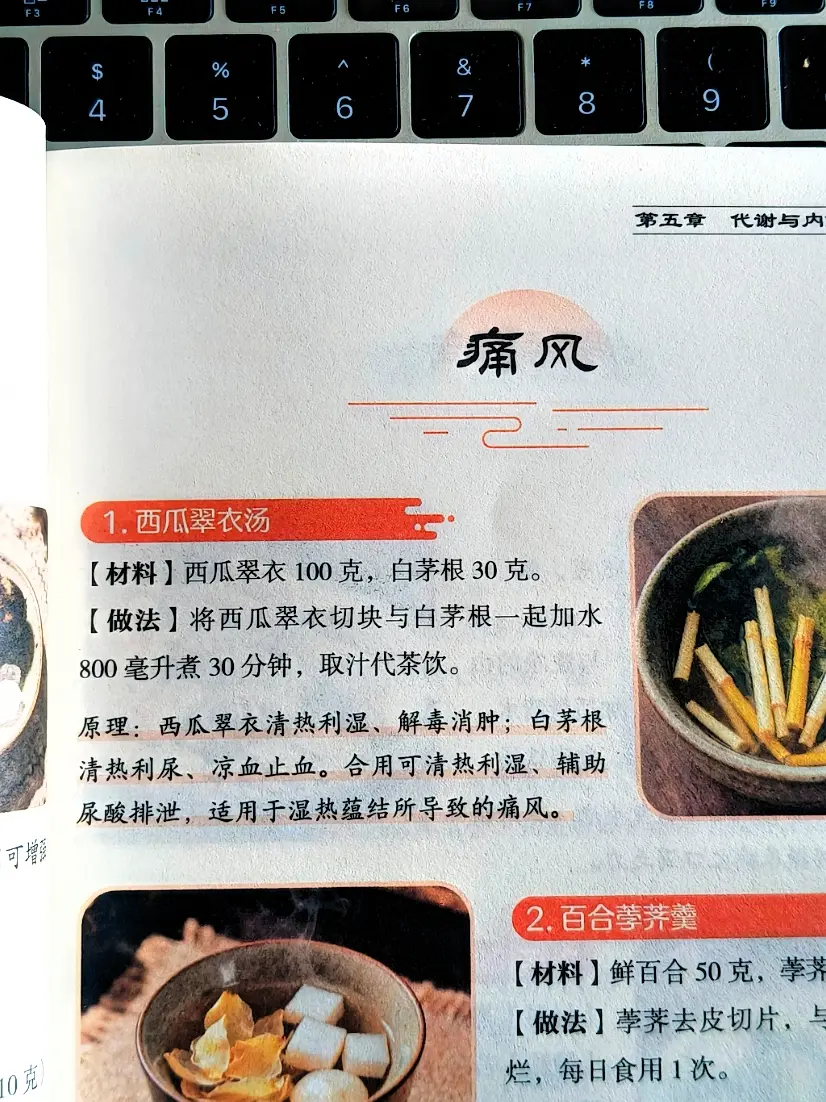 F3
F4
F5
F6
F7
F8
F9
$
4
%
5
^
6
&
7
*
8
(
9
第五章 代谢与内
痛风
1. 西瓜翠衣汤
【材料】西瓜翠衣 100 克，白茅根 30 克。
【做法】将西瓜翠衣切块与白茅根一起加水
800 毫升煮 30 分钟，取汁代茶饮。
原理：西瓜翠衣清热利湿、解毒消肿；白茅根
清热利尿、凉血止血。合用可清热利湿、辅助
尿酸排泄，适用于湿热蕴结所导致的痛风。
可增强
10 克）
2. 百合荸荠羹
【材料】鲜百合 50 克，荸荠
【做法】荸荠去皮切片，与
烂，每日食用 1 次。